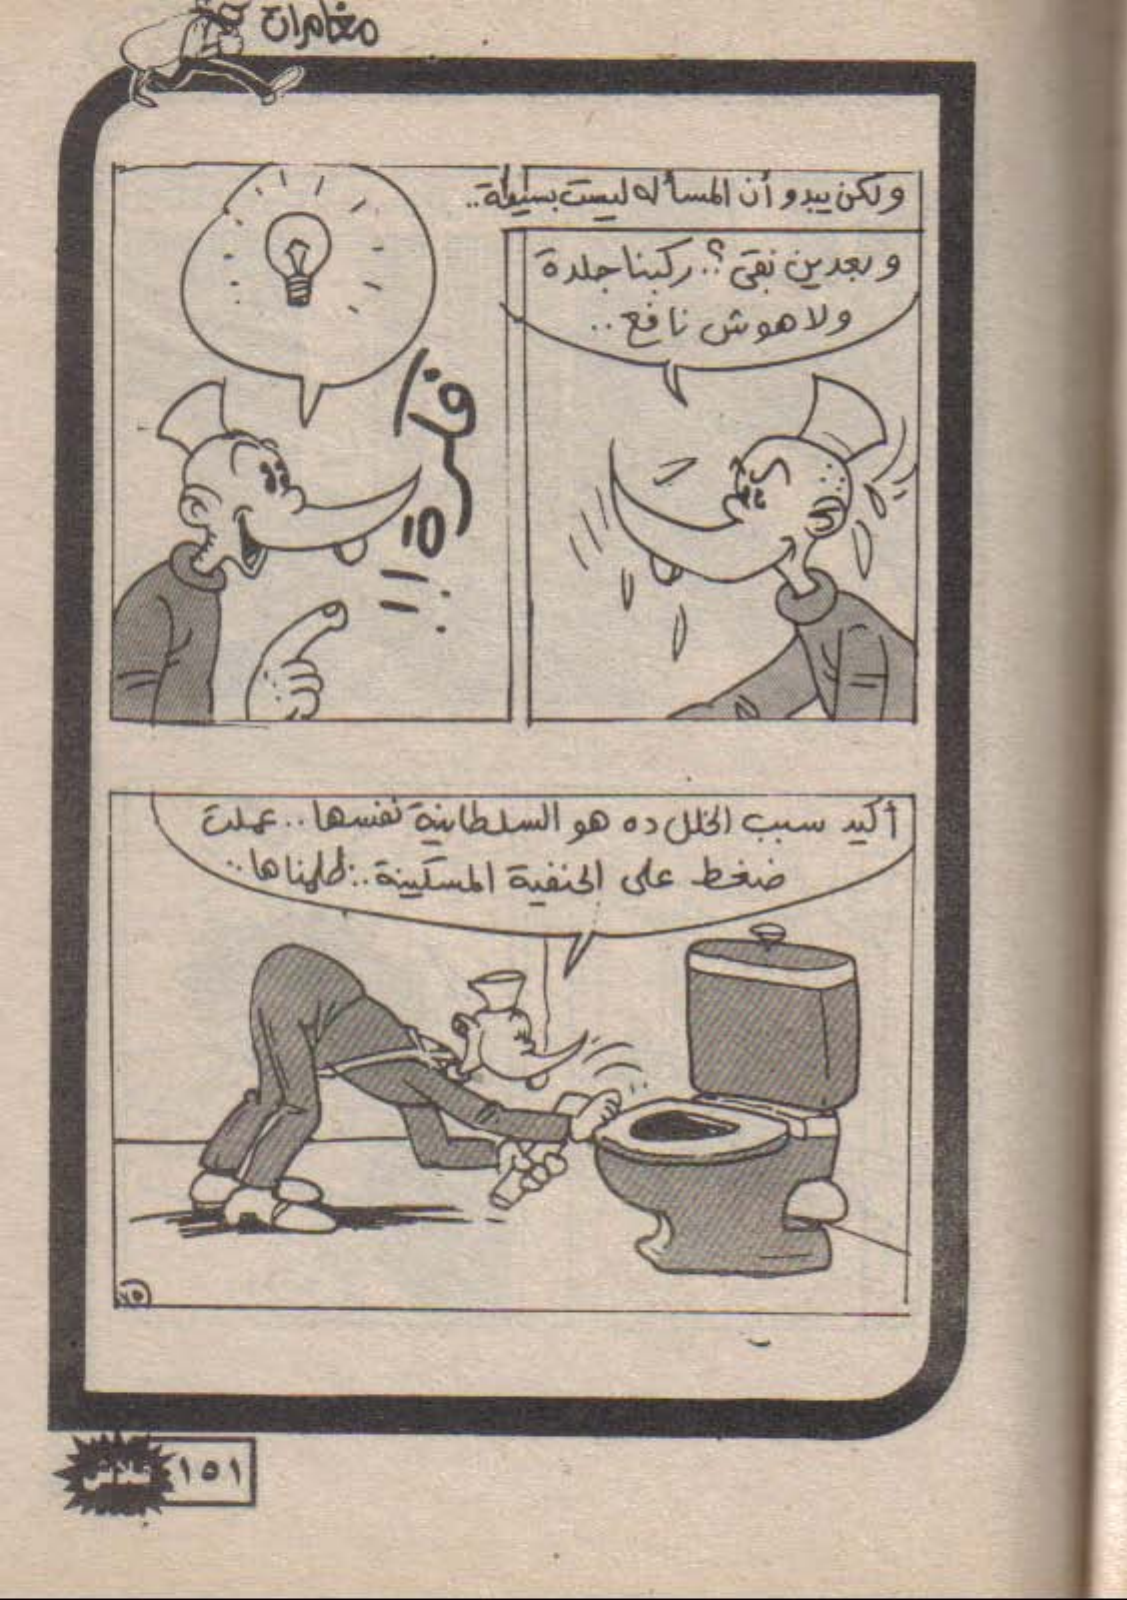 مغامرات
ولكن يبدو أن المسأله ليست بسيطة..
وبعدين بقى؟.. ركبنا جلدة
ولا هوش نافع..
فكرة!!
أكيد سبب الخلل ده هو السلطانية نفسها.. عملت
ضغط على الحنفية المسكينة.. ظلمناها..
١٥١
فلاش